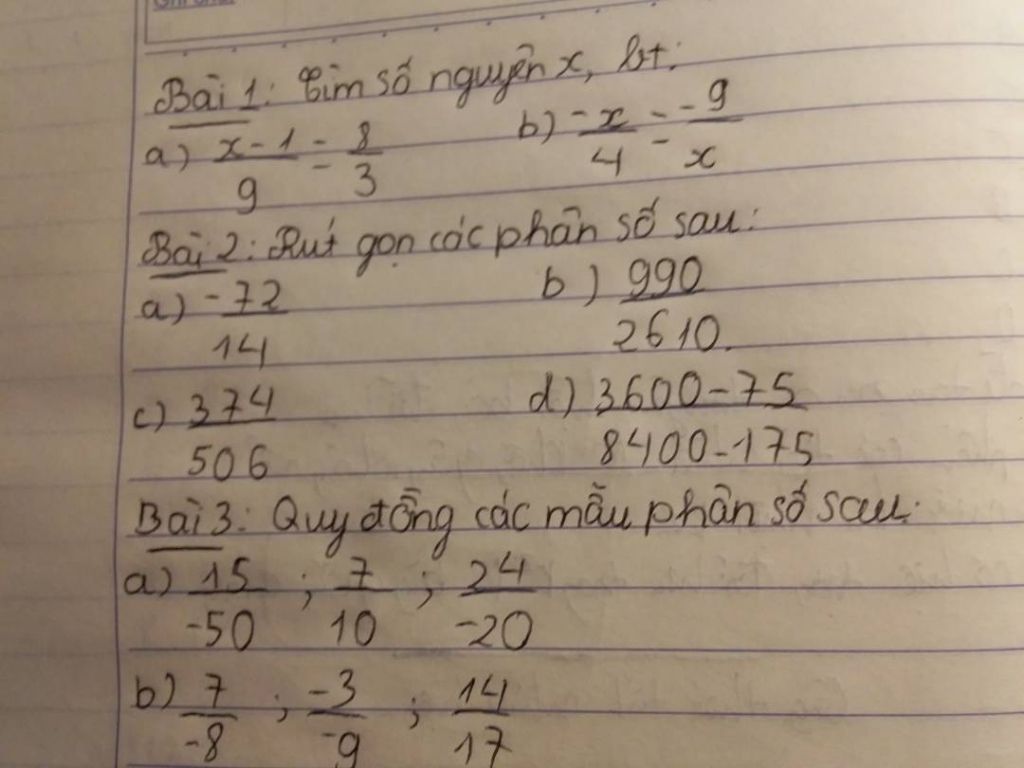 Bài 1: Tìm số nguyên x, bt:
a) x-1/9 = 8/3 b) -x/4 = -9/x
Bài 2: Rút gọn các phân số sau:
a) -72/14 b) 990/2610.
c) 374/506 d) 3600-75/8400-175
Bài 3: Quy đồng các mẫu phân số sau:
a) 15/-50 ; 7/10 ; 24/-20
b) 7/-8 ; -3/-9 ; 14/17